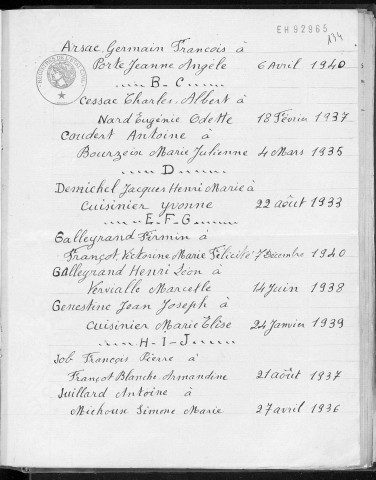 EH 92865
134
Arsac Germain François à
Porte Jeanne Angèle 6 Avril 1940
B-C
Cessac Charles Albert à
Nard Eugénie Odette 18 Février 1937
Coudert Antoine à
Bourzeix Marie Julienne 4 Mars 1935
D
Demichel Jacques Henri Marie à
Cuisinier Yvonne 22 août 1933
E-F-G
Galleyrand Firmin à
Françot Victorine Marie Félicité 7 Décembre 1940
Galleyrand Henri Léon à
Vervialle Marcelle 14 Juin 1938
Genestine Jean Joseph à
Cuisinier Marie Elise 24 Janvier 1939
H-I-J
Job François Pierre à
Françot Blanche Armandine 21 août 1937
Juillard Antoine à
Michoux Simone Marie 27 avril 1936